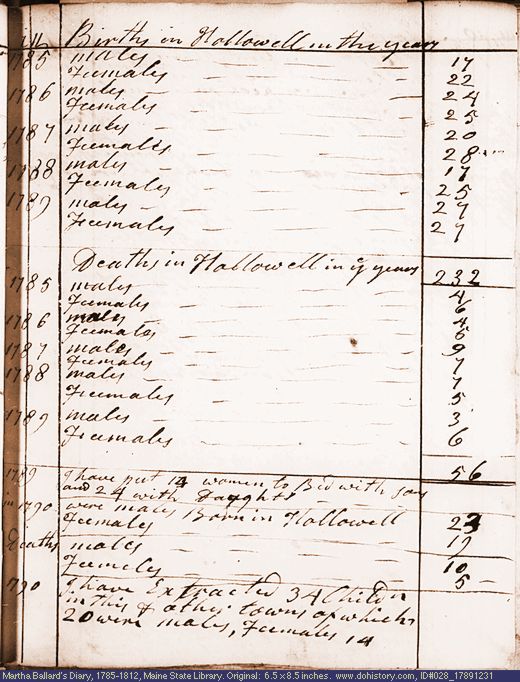 in Births in Hallowell in the years
1785 males 17
Feemales 22
1786 males 24
Feemales 25
1787 males 20
Feemales 28
1788 males 17
Feemales 25
1789 males 27
Feemales 27
Deaths in Hallowell in ye years 232
1785 males 4
Feemales 6
1786 males 4
Feemales
1787 males 9
Feemales 7
1788 males 7
Feemales 5
1789 males 3
Feemales 6
56
1789 I have put 14 women to Bed with sons
and 24 with Daughts
in 1790 were males Born in Hallowell 23
Feemales 19
Deaths males 10
Feemales 5
1790 I have Extracted 34 Childn
in this & other towns of which
20 were males, Feemales 14
Martha Ballard's Diary, 1785-1812, Maine State Library. Original: 6.5 x 8.5 inches. www.dohistory.com, ID#028_17891231